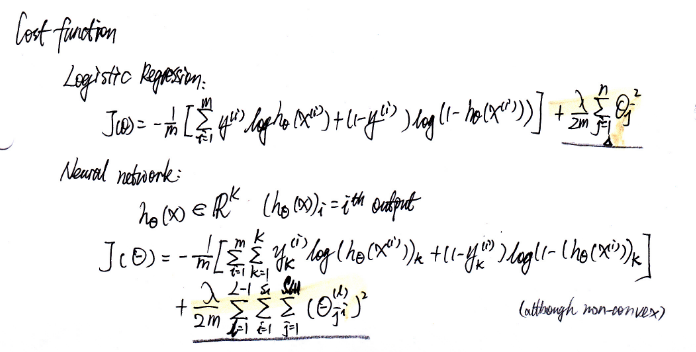 Cost function
Logistic Regression:
J(θ) = -1/m [∑_{i=1}^{m} y^{(i)} log h_θ(x^{(i)}) + (1-y^{(i)}) log(1-h_θ(x^{(i)}))] + λ/2m ∑_{j=1}^{n} θ_j^2
Neural network:
h_θ(x) ∈ ℝ^K (h_θ(x))_i = i^{th} output
J(Θ) = -1/m [∑_{i=1}^{m} ∑_{k=1}^{K} y_k^{(i)} log(h_θ(x^{(i)}))_k + (1-y_k^{(i)}) log(1-(h_θ(x^{(i)}))_k]
+ λ/2m ∑_{l=1}^{L-1} ∑_{i=1}^{s_l} ∑_{j=1}^{s_{l+1}} (Θ_{ji}^{(l)})^2 (although non-convex)